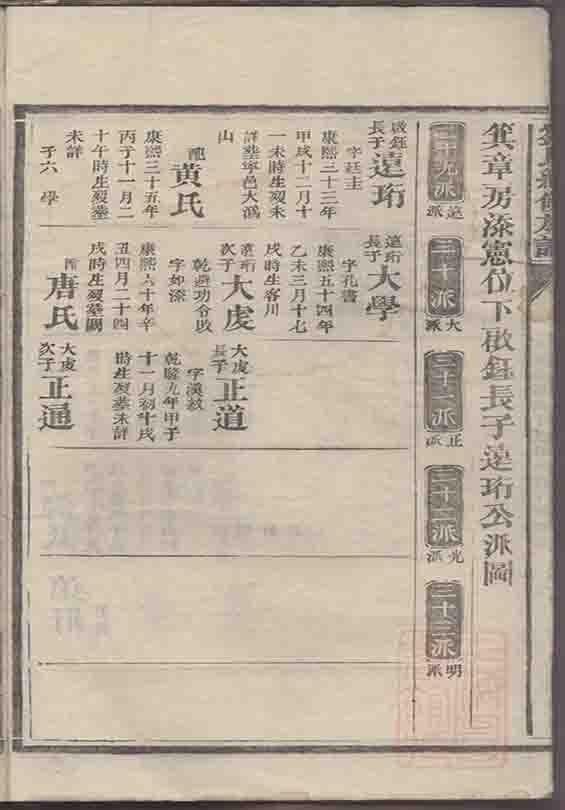 箕章房添憲位下啟鈺長子遠珩公派圖
二十九派 遠派
三十派 大派
三十一派 正派
三十二派 光派
三十三派 明派
啟鈺長子遠珩
字廷圭
康熙三十三年
甲戌十二月十
一未時生歿未
詳墓寧邑大溈
山
配黄氏
康熙三十五年
丙子十一月二
十午時生歿墓
未詳
子六 學
遠珩長子大學
字孔書
康熙五十四年
乙未三月十七
戌時生客川
遠珩次子大虔
乾避功令改
字如添
康熙六十年辛
丑四月二十四
戌時生歿墓闕
唐氏
大虔長子正道
字漢紋
乾隆九年甲子
十一月初十戌
時生歿墓未詳
大虔次子正通